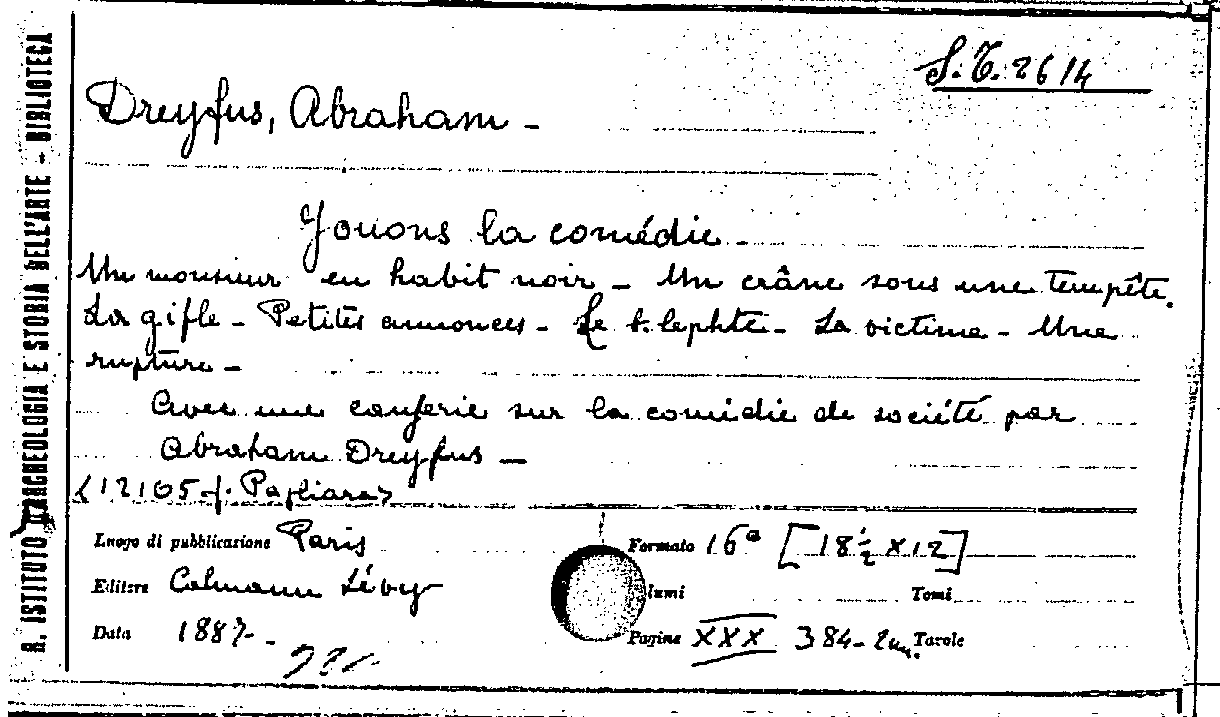 S.T. 2614
Dreyfus, Abraham -
Jouons la comédie -
Un monsieur en habit noir - Un crâne sous une tempête.
La gifle - Petites annonces - Le - La victime - Une
rupture -
Avec une conferie sur la comédie de société par
Abraham Dreyfus -
<12105 f. Pagliara>
Luogo di pubblicazione Paris
Formato 16° [18½ x 12]
Editore Calmann Lévy
lumi Tomi
Data 1887 -
Pagine XXX 384 - Tavole
R. ISTITUTO D'ARCHEOLOGIA E STORIA DELL'ARTE - BIBLIOTECA